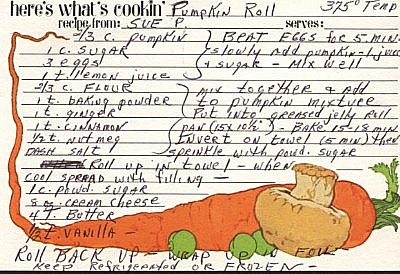 here's what's cookin' Pumpkin Roll 375° Temp
recipe from: SUE P. serves:
2/3 c. pumpkin } BEAT EGGS for 5 min.
1 c. SUGAR slowly add pumpkin - l. juice
3 eggs + sugar - Mix well
1 t. lemon juice
2/3 c. FLOUR } mix together & add
1 t. baking powder to pumpkin mixture
1 t. ginger Put into greased jelly Roll
1 t. cinnamon PAN (15x10½) - Bake 15-18 min
½ t. nutmeg INVERT on towel (5 min) then
DASH SALT sprinkle with powd. sugar
Roll up in towel - when
cool SPREAD with filling -
1 c. powd. sugar
8 oz. cream cheese
4 T. Butter
½ t. VANILLA -
Roll BACK UP - WRAP UP IN FOIL
KEEP REFRIGERATED OR FROZEN -